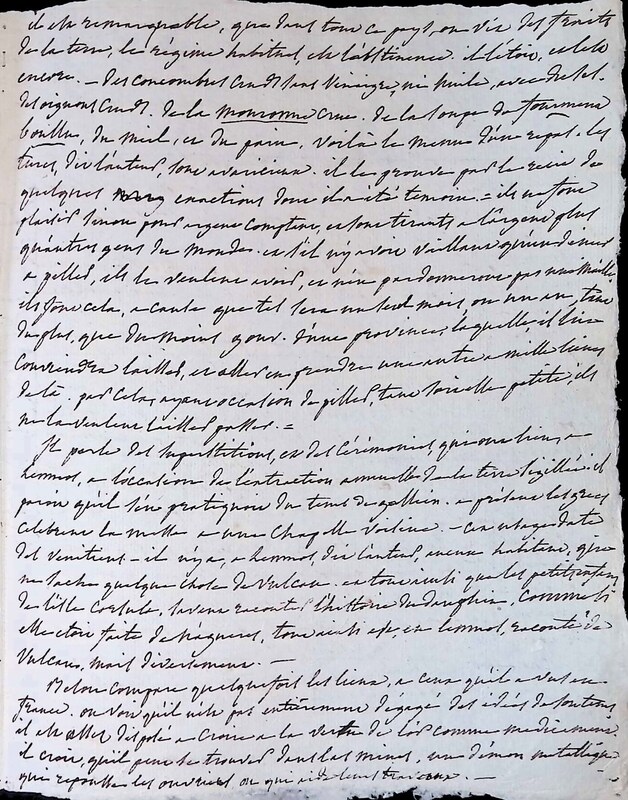 il est remarquable, que dans tout ce pays, on vit des fruits
de la terre, le régime habituel, est l'abstinence. il l'etoit, et l'est
encore. — des concombres cruds sans vinaigre, ni huile, avec du sel.
des oignons cruds. de la mouronne crue. de la soupe de fourment
boullu, du miel, et du pain, voilà le menu d'un repas. les
turcs, dit l'auteur, sont avaricieux. il le prouve par le récit de
quelques exactions dont il a été temoin. = ils ne font
plaisir sinon pour argent comptant, et sont tirants a l'argent plus
qu'autres gens du monde. et s'il n'y avoit vaillant qu'un denier
a piller, ils le veulent avoir, et n'en pardonneroient pas une maille
ils font cela, a cause que tel sera un seul mois, ou un an, tant
du plus, que du moins gouv. d'une province, laquelle il lui
conviendra laisser, et aller en prendre une autre a mille lieues
de là. par cela, ayant occasion de piller, tant soit elle petite, ils
ne la veulent laisser passer. =
Il parle des superstitions, et des cérémonies, qui ont lieu, a
lemnos, a l'occasion de l'extraction annuelle de la terre sigillée. il
paroit qu'il s'en pratiquoit du tems de gallien. a présent les grecs
celebrent la messe a une chapelle voisine. — cet usage date
des venitiens — il n'y a, a lemnos, dit l'auteur, aucun habitant, que
ne sache quelque chose de vulcan. et tout ainsi que les petits enfans
de l'isle Corsule, savent raconter l'histoire du dauphin, comme si
elle etoit faite de n'agueres, tout ainsi est, en lemnos, raconté de
Vulcan, mais diversement. —
Belon compare quelquefois les lieux, a ceux qu'il a vus en
france. on voit qu'il n'est pas entièrement dégagé des idées de son tems
il est assez disposé a croire a la vertu de l'or comme medicament
il croit, qu'il peut se trouver dans les mines, un démon metallique
qui repousse les ouvriers ou qui aide leurs travaux. —